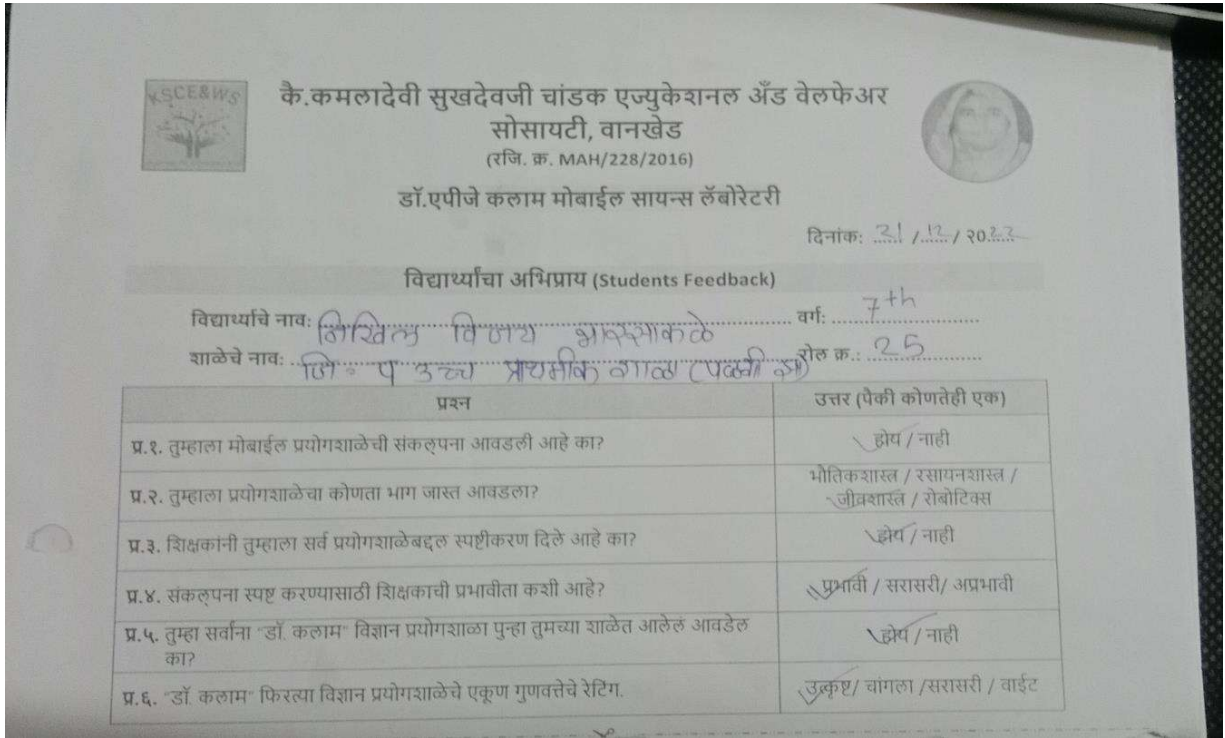 KSCE&WS
कै.कमलादेवी सुखदेवजी चांडक एज्युकेशनल अँड वेलफेअर
सोसायटी, वानखेड
(रजि. क्र. MAH/228/2016)
डॉ.एपीजे कलाम मोबाईल सायन्स लॅबोरेटरी
दिनांक: 21 / 12 / २०22
विद्यार्थ्यांचा अभिप्राय (Students Feedback)
विद्यार्थ्याचे नाव: निखिल विजय वर्ग: 7th
शाळेचे नाव: जि. प उच्च प्राथमीक शाळा (पळशी रोल क्र.: 25
प्रश्न उत्तर (पैकी कोणतेही एक)
प्र.१. तुम्हाला मोबाईल प्रयोगशाळेची संकल्पना आवडली आहे का? होय / नाही
प्र.२. तुम्हाला प्रयोगशाळेचा कोणता भाग जास्त आवडला? भौतिकशास्त्र / रसायनशास्त्र /
जीवशास्त्र / रोबोटिक्स
प्र.३. शिक्षकांनी तुम्हाला सर्व प्रयोगशाळेबद्दल स्पष्टीकरण दिले आहे का? होय / नाही
प्र.४. संकल्पना स्पष्ट करण्यासाठी शिक्षकाची प्रभावीता कशी आहे? प्रभावी / सरासरी/ अप्रभावी
प्र.५. तुम्हा सर्वांना "डॉ. कलाम" विज्ञान प्रयोगशाळा पुन्हा तुमच्या शाळेत आलेलं आवडेल होय / नाही
का?
प्र.६. "डॉ. कलाम" फिरत्या विज्ञान प्रयोगशाळेचे एकूण गुणवत्तेचे रेटिंग. उत्कृष्ट/ चांगला /सरासरी / वाईट